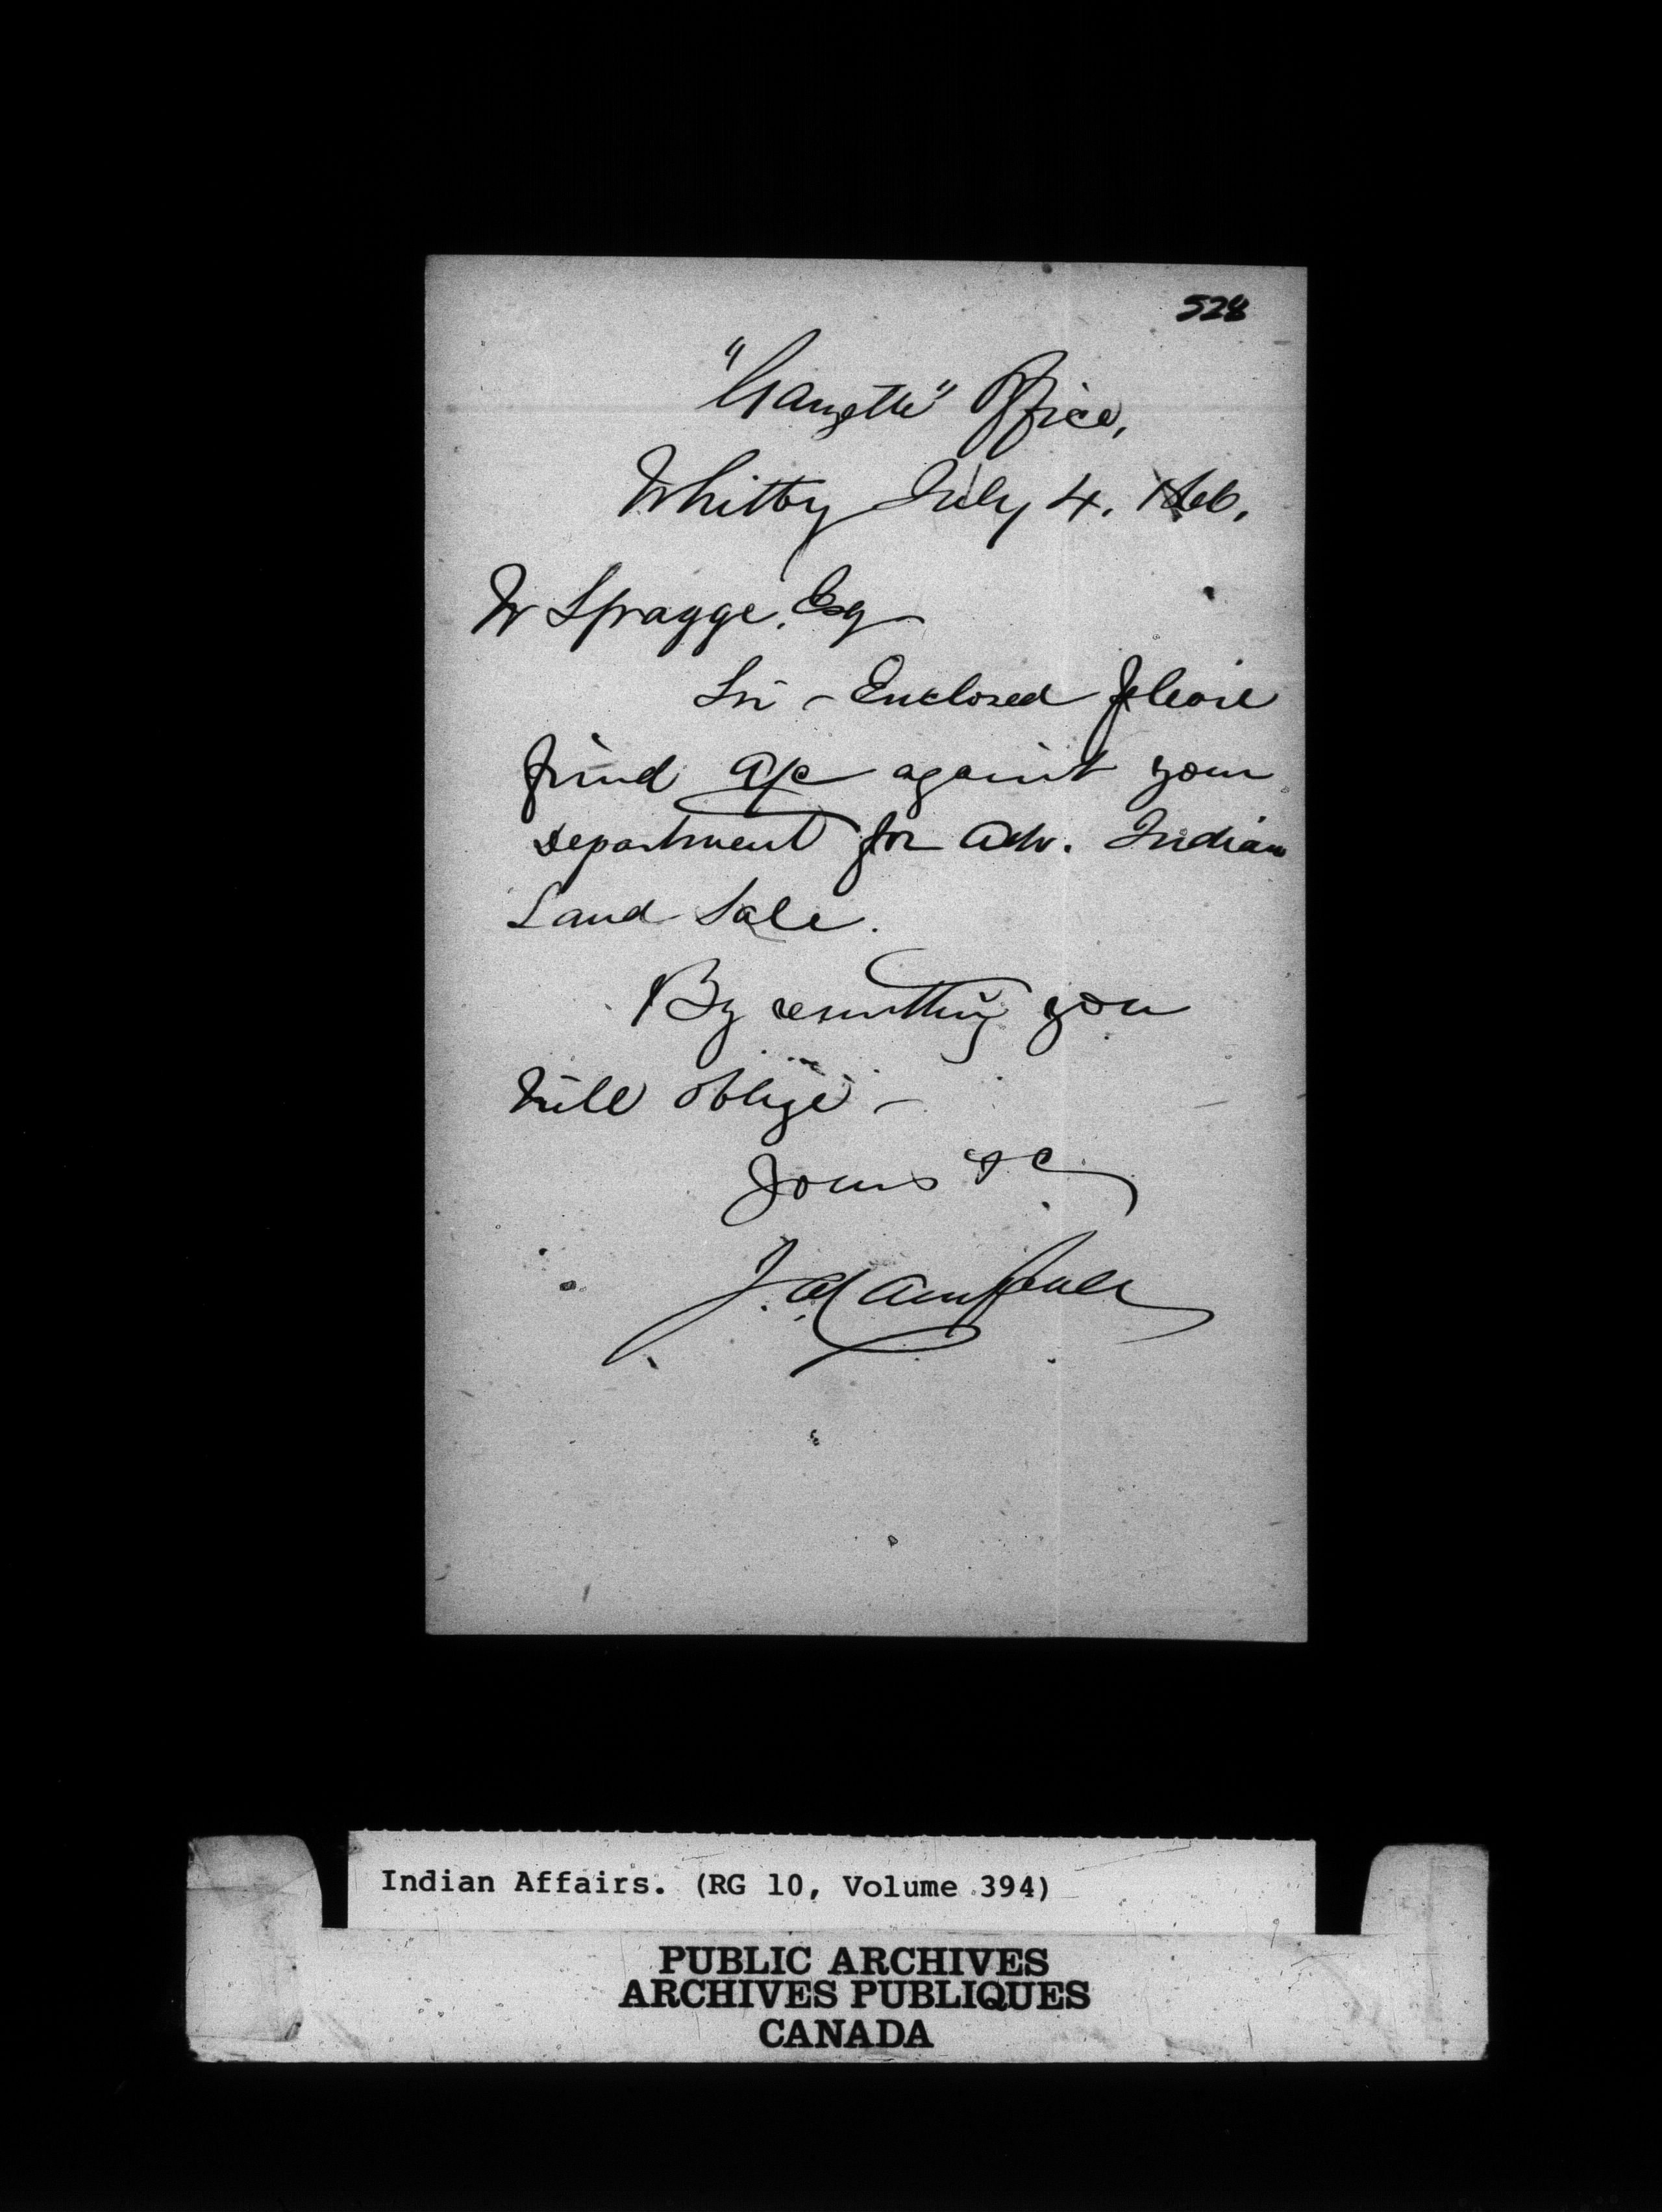 528
"Gazette" Office,
Whitby July 4. 1866.
W Spragge, Esq
Sir - Enclosed please
find a/c against your
Department for Adv. Indian
Land Sale.
By remitting you
Will oblige -
Yours &c
Indian Affairs. (RG 10, Volume 394)
PUBLIC ARCHIVES
ARCHIVES PUBLIQUES
CANADA